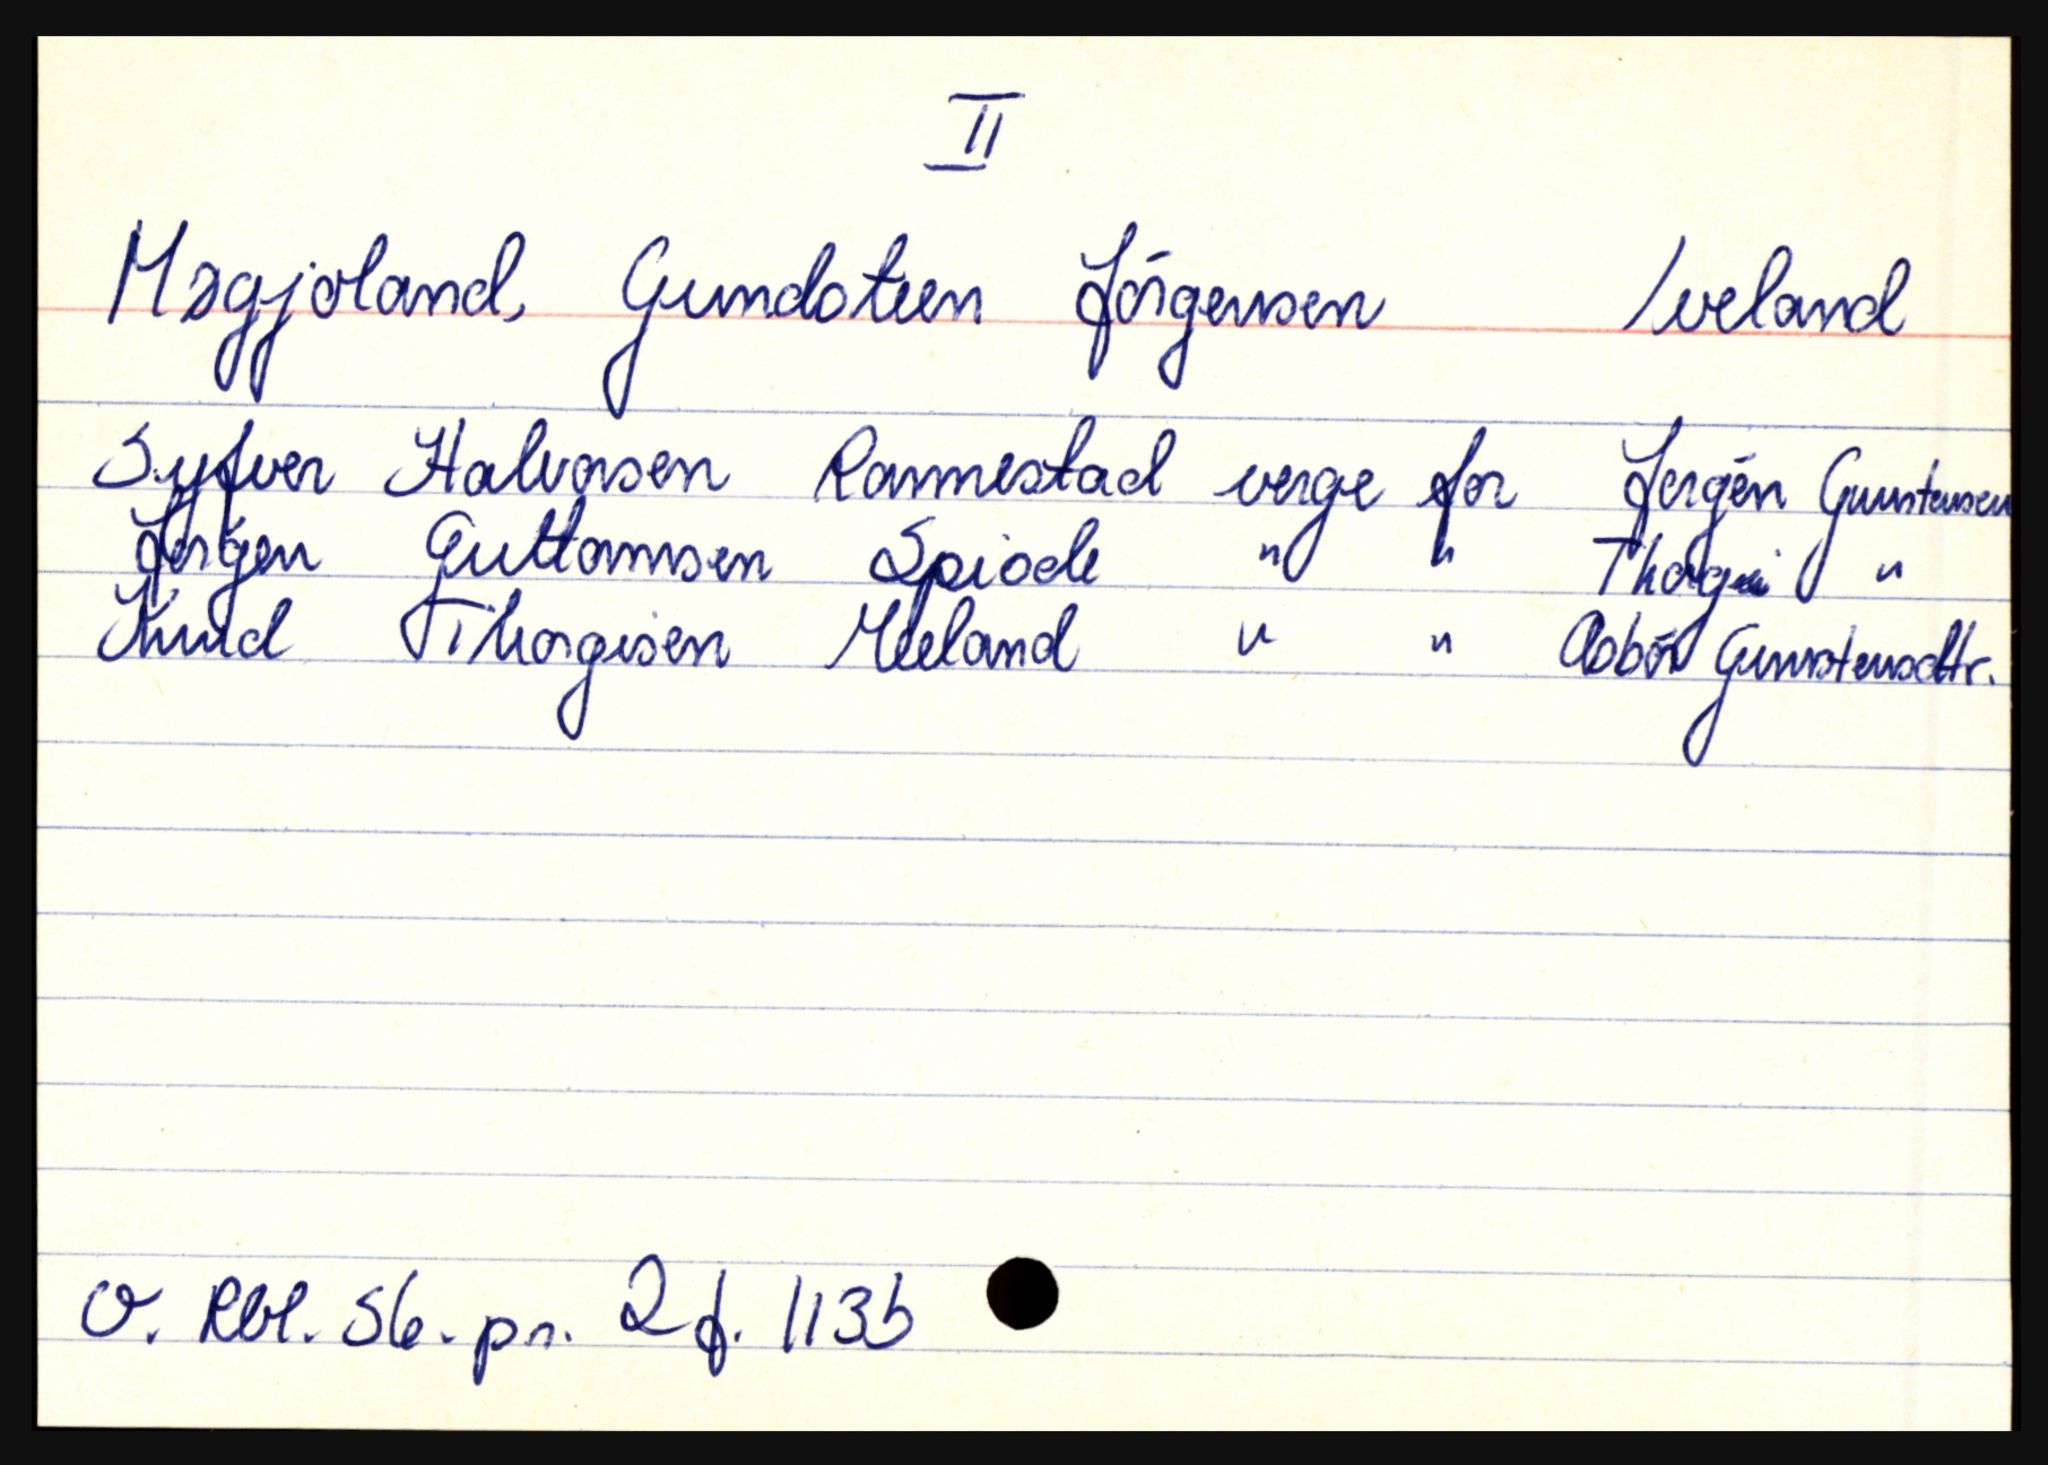 II
Mægjoland, Gundsteen Jórgensen Iveland
Syfver Halvorsen Rannestad verge for Jorgén Gunstensen
Jorgen Guttormsen Spiode " " Thorgi "
Knud Thorgisen Meeland " " Asbór Gunnstensdtr.
V. Rbl. S6. pr. 2 f. 113b